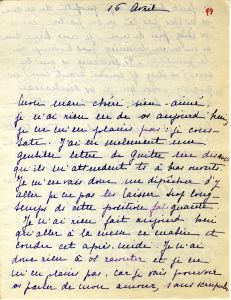 16 Avril
99
mon mari chéri, bien-aimé,
je n'ai rien eu de vous aujourd'hui,
je ne m'en plains pas : je cons-
tate. J'ai eu seulement une
gentille lettre de me disant
qu'ils m'attendent à bras ouverts.
Je m'en vais donc me dépêcher d'y
aller je ne pas les laisser trop long-
temps de cette position
Je n'ai rien fait aujourd'hui
qu'aller à la messe ce matin et
coudre cet après-midi. Je n'ai
donc rien à vous raconter et je ne
m'en plains pas, car je vais pouvoir
vous parler de mon amour, sans